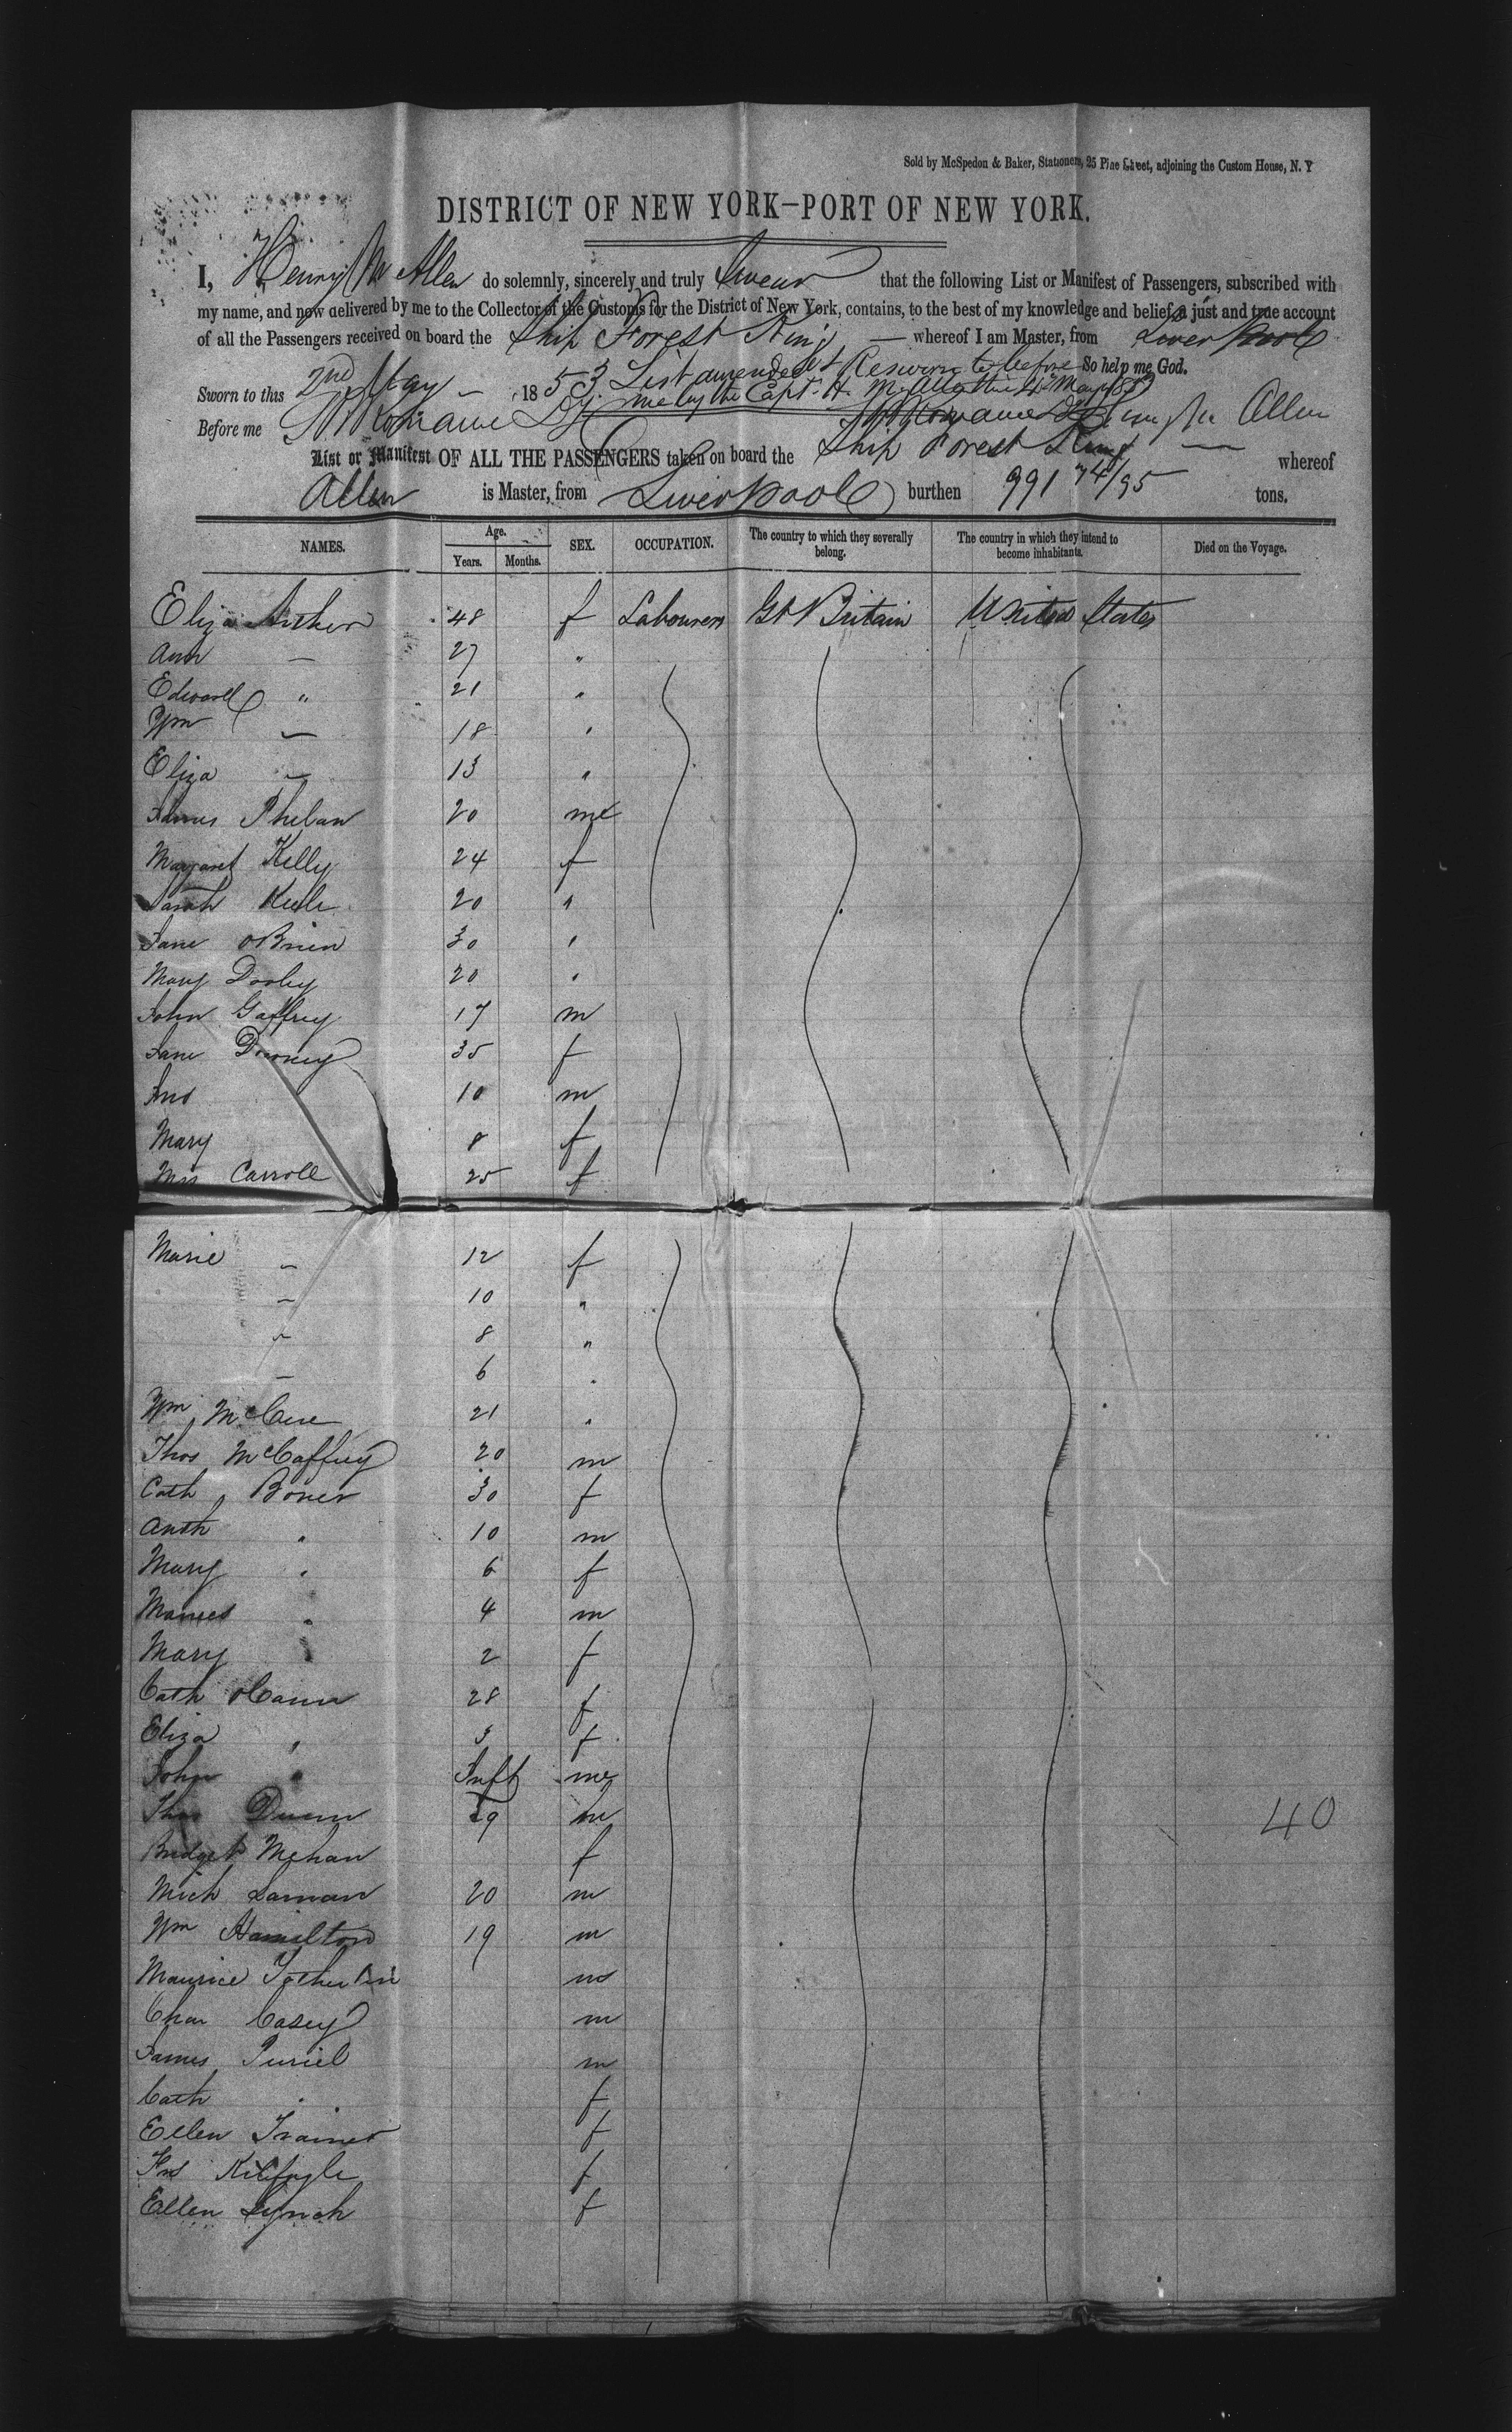 Sold by McSpedon & Baker, Stationers, 25 Pine Street, adjoining the Custom House, N. Y
DISTRICT OF NEW YORK—PORT OF NEW YORK.
I, Henry M Allen do solemnly, sincerely and truly Swear that the following List or Manifest of Passengers, subscribed with
my name, and now delivered by me to the Collector of the Customs for the District of New York, contains, to the best of my knowledge and belief, a just and true account
of all the Passengers received on board the Ship Forest King — whereof I am Master, from Liverpool
List amended & Resworn to before So help me God.
Sworn to this 2nd May — 1853. me by the Capt. H. M Allen this 4 May 1853
Before me Allen
List or Manifest OF ALL THE PASSENGERS taken on board the Ship Forest King — whereof
Allen is Master, from Liverpool burthen 991 74/95 tons.
NAMES. Age. Years. Months. SEX. OCCUPATION. The country to which they severally belong. The country in which they intend to become inhabitants. Died on the Voyage.
Eliza 48 f Labourers Gt Britain United States
Ann — 27 "
Edward " 21 "
Wm — 18 "
Eliza — 13 "
James Phelan 20 m
Margaret Kelly 24 f
Sarah 20 "
Jane OBrien 30 "
Mary Dooley 20 "
John Gaffney 17 m
Jane Downey 35 f
Jno 10 m
Mary 8 f
Mrs Carroll 25 f
Marie — 12 f
— 10 "
— 8 "
— 6 "
Wm 21 "
Thos McCaffrey 20 m
Cath Boner 30 f
Anth " 10 m
Mary " 6 f
Manus " 4 m
Mary " 2 f
Cath 28 f
Eliza " 3 f
John " Inft m
Thos Dunn 29 m 40
Bridget Mehan f
Mich Laman 20 m
Wm Hamilton 19 m
Maurice m
Chas Casey m
James m
Cath " f
Ellen Trainer f
f
Ellen Lynch f